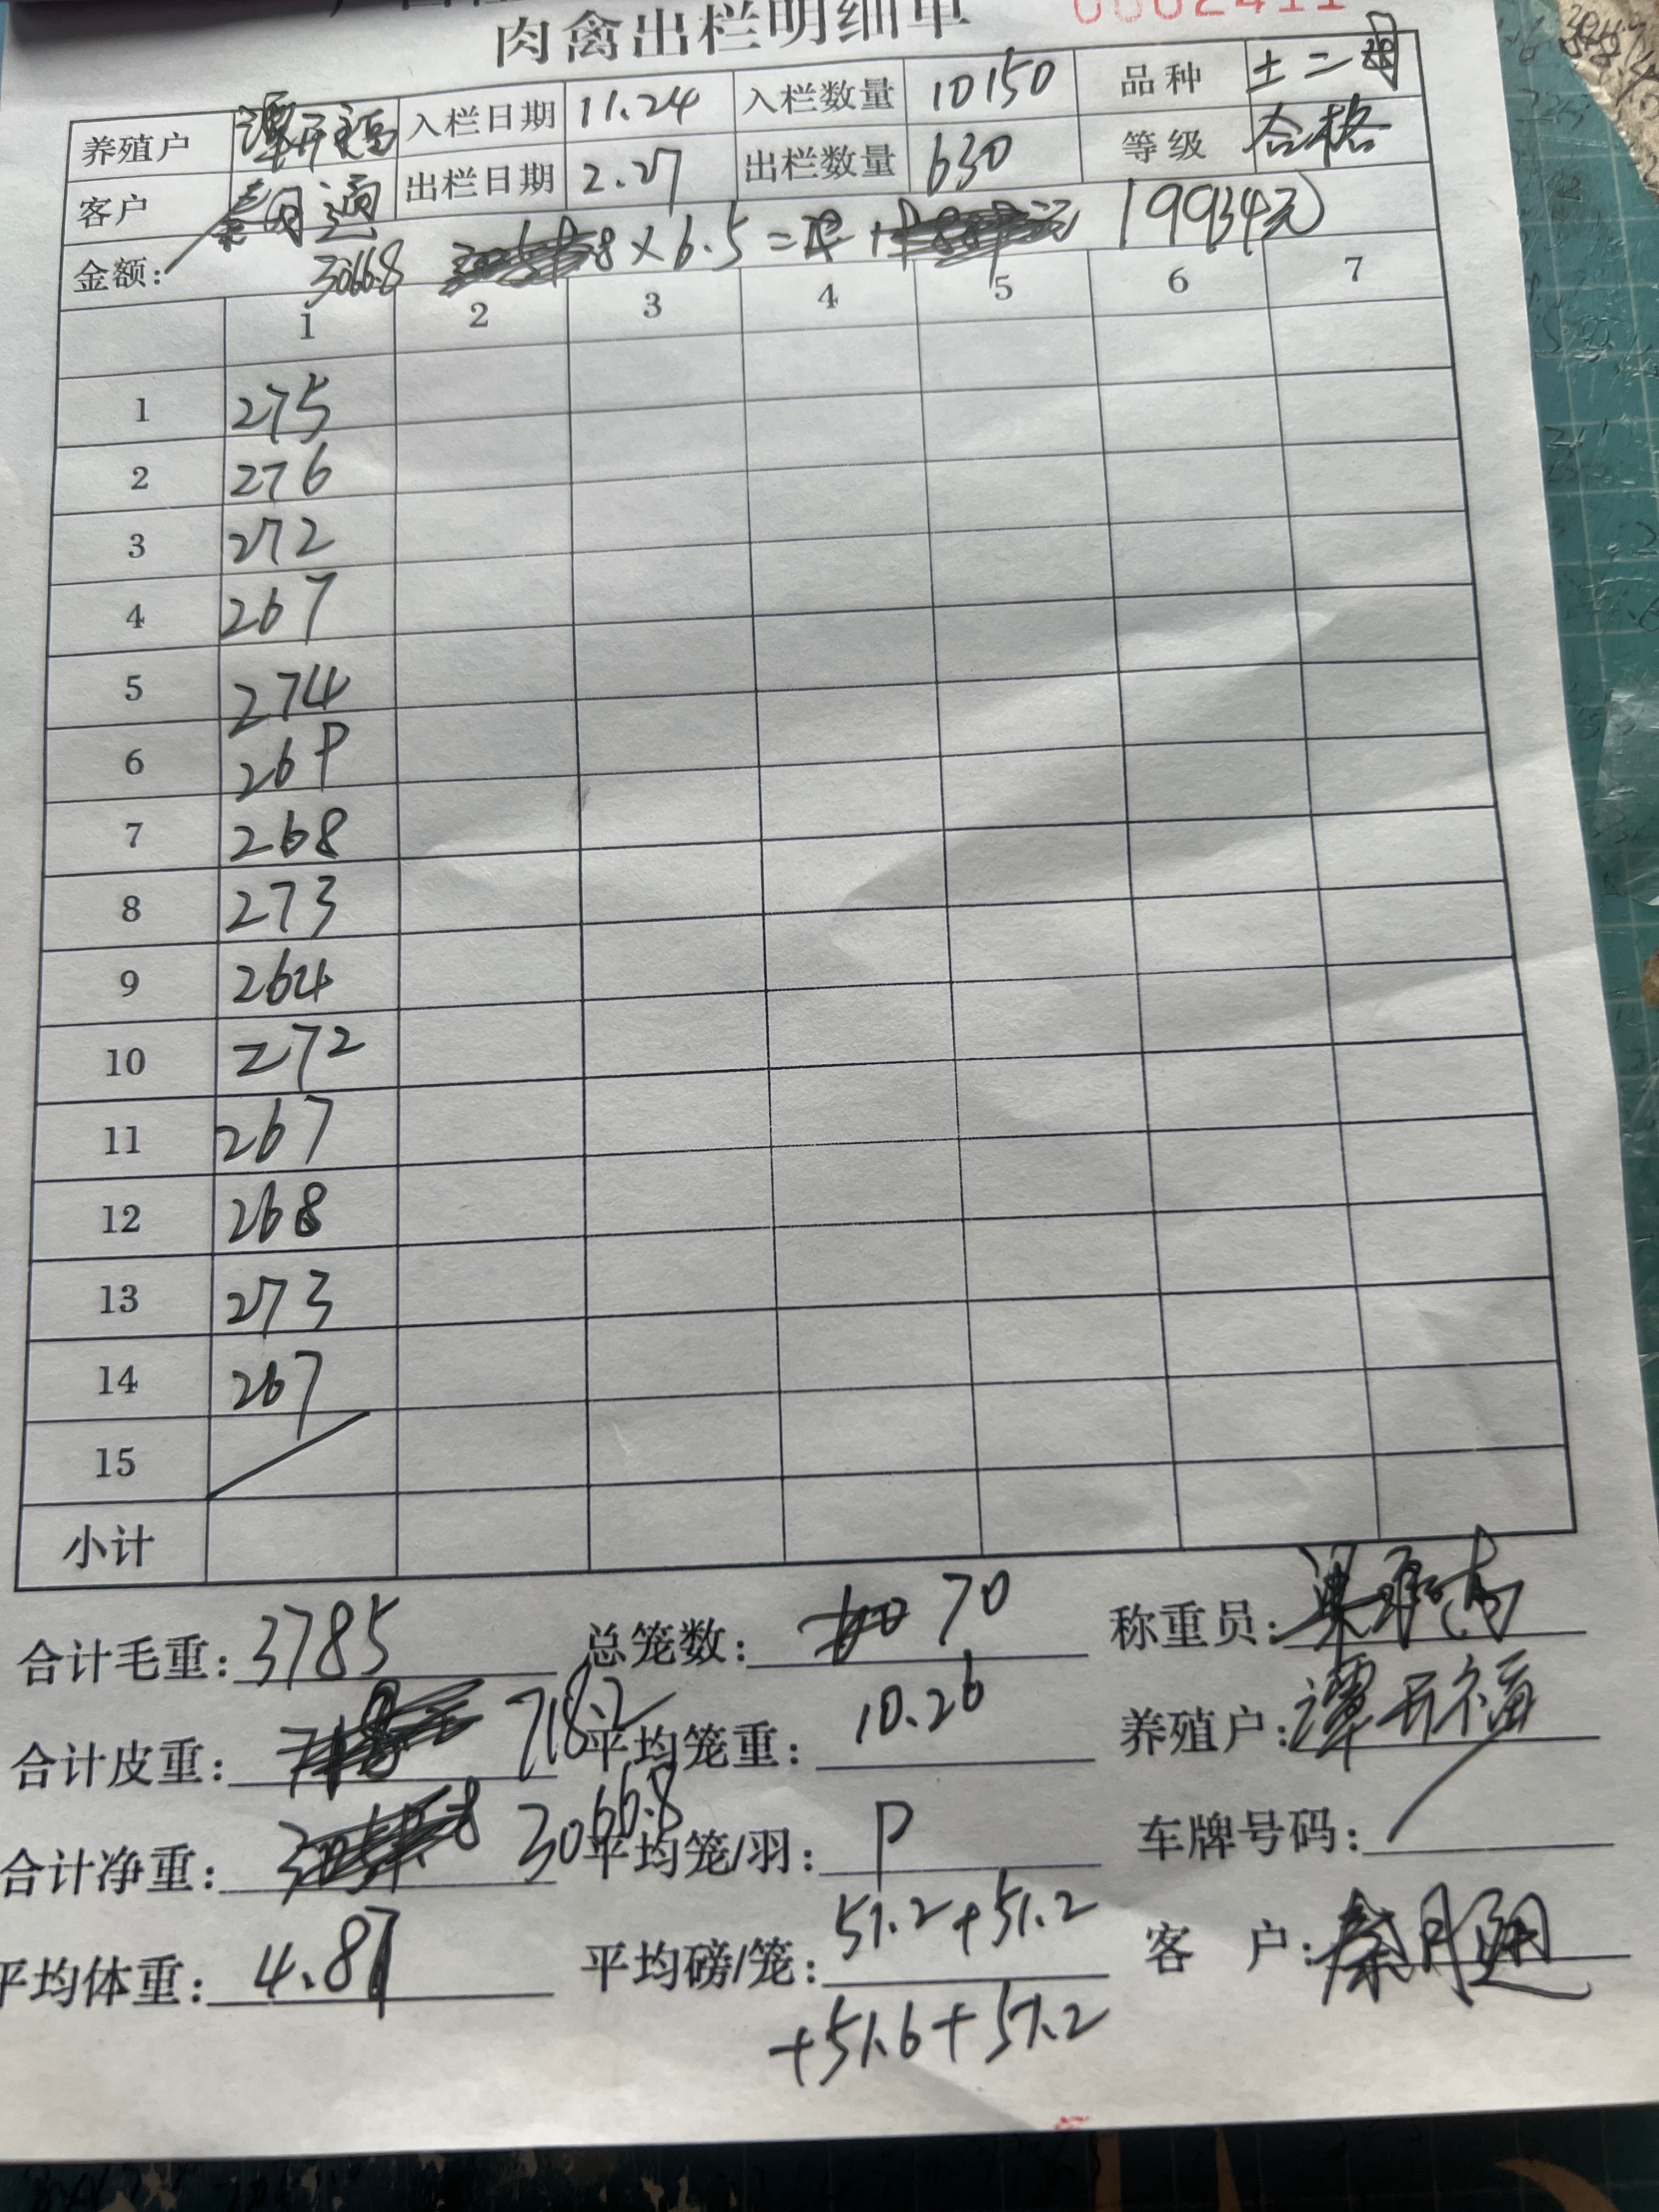 肉禽出栏明细单 0002411
养殖户 谭开福 入栏日期 11.24 入栏数量 10150 品种 土二
客户 秦月 出栏日期 2.27 出栏数量 630 等级 合格
金额: 3066.8 8×6.5= 19934元
1 2 3 4 5 6 7
1 275
2 276
3 272
4 267
5 274
6 269
7 268
8 273
9 264
10 272
11 267
12 268
13 273
14 267
15
小计
合计毛重: 3785 总笼数: 70 称重员:
合计皮重: 718.2 平均笼重: 10.26 养殖户: 谭开福
合计净重: 3066.8 平均笼/羽: 9 车牌号码:
平均体重: 4.87 平均磅/笼: 51.2+51.2 客户: 秦月
+51.6+51.2